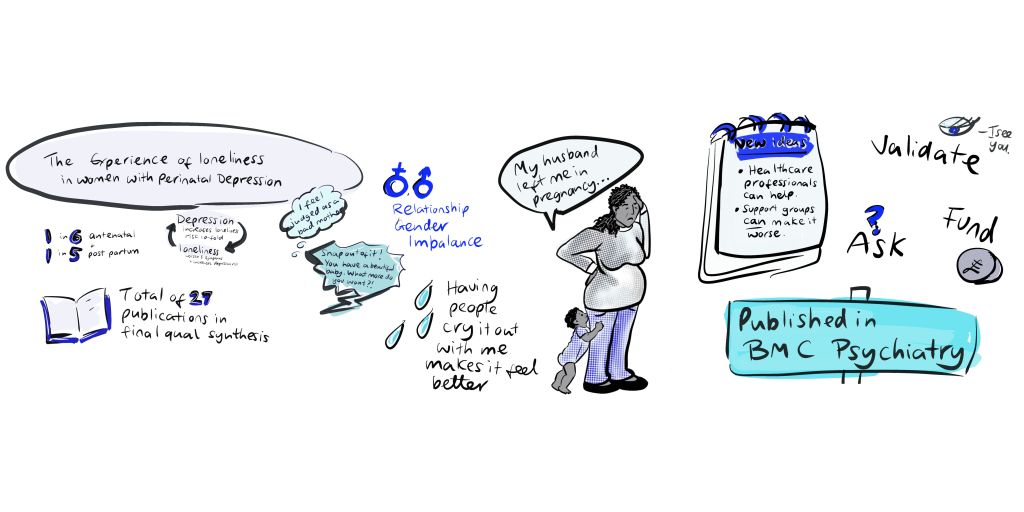 The Experience of loneliness
in women with Perinatal Depression
1 in 6 antenatal
+
1 in 5 post partum
Depression
increases loneliness
loneliness
Total of 27
publications in
final qual synthesis
I feel
judged as a
bad mother
Snap out of it!
You have a beautiful
baby. What more do
you want?!
Relationship
Gender
Imbalance
Having
people
cry it out
with me
makes it feel
better
My husband
left me in
pregnancy...
New ideas
• Healthcare
professionals
can help.
• Support groups
can make it
worse.
Validate
- I see
you.
?
Ask
Fund
Published in
BMC Psychiatry